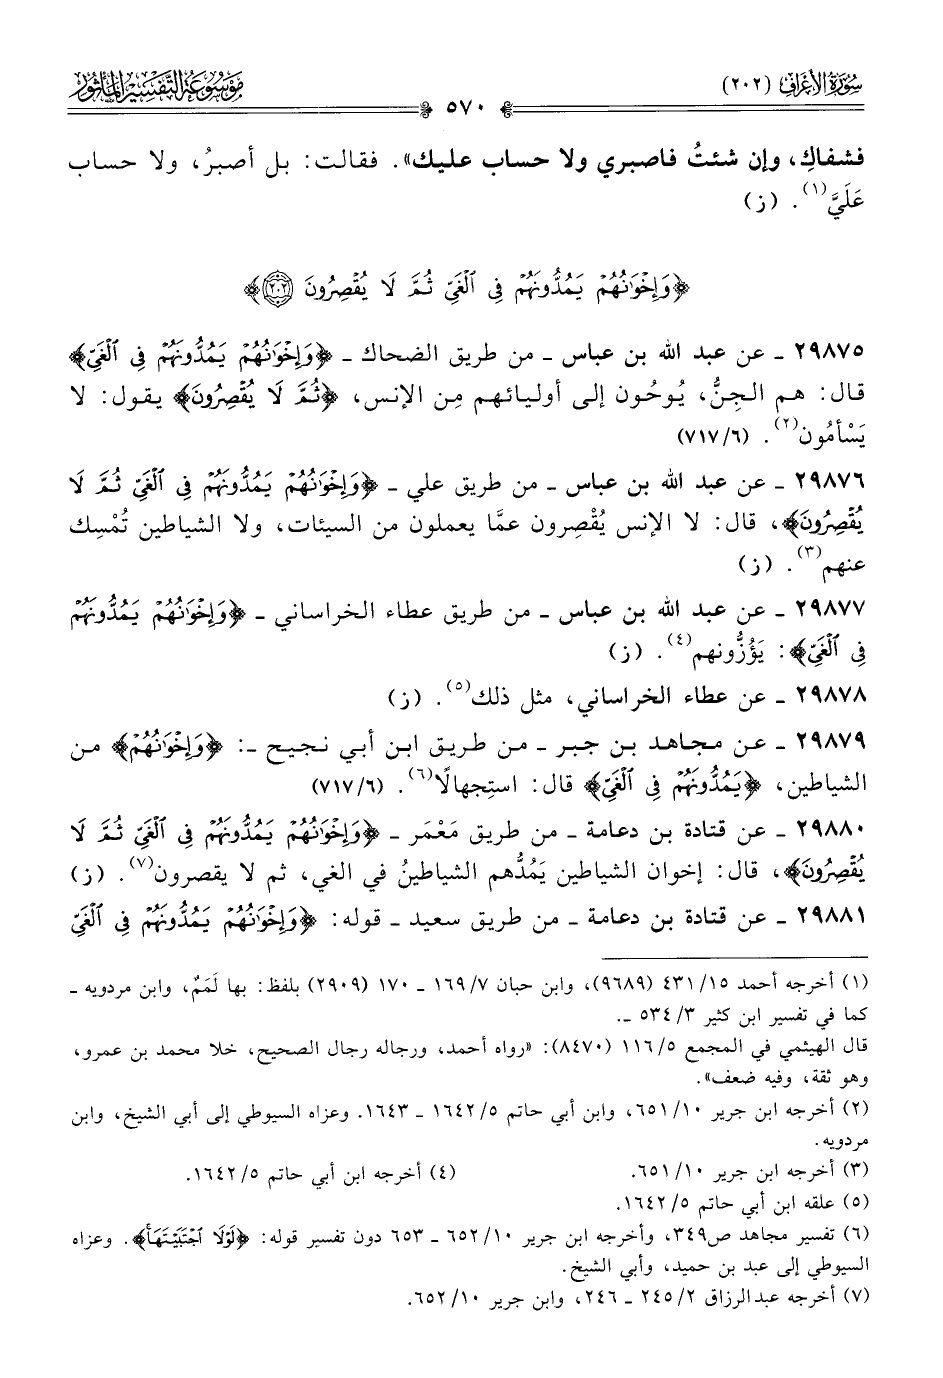 سُورَةُ الأَعْرَافِ (٢٠٢)
٥٧٠
مَوْسُوعَةُ التَّفْسِيرِ المَأْثُور
فشفاكِ، وإن شئتُ فاصبري ولا حساب عليك». فقالت: بل أصبرُ، ولا حساب
عَلَيَّ(١). (ز)
﴿وَإِخْوَٰنُهُمْ يَمُدُّونَهُمْ فِى ٱلْغَىِّ ثُمَّ لَا يُقْصِرُونَ ٢٠٢﴾
٢٩٨٧٥ ـ عن عبد الله بن عباس ـ من طريق الضحاك ـ ﴿وَإِخْوَٰنُهُمْ يَمُدُّونَهُمْ فِى ٱلْغَىِّ﴾
قال: هم الجِنُّ، يُوحُون إلى أوليائهم مِن الإنس، ﴿ثُمَّ لَا يُقْصِرُونَ﴾ يقول: لا
يَسْأمُون(٢). (٦/ ٧١٧)
٢٩٨٧٦ ـ عن عبد الله بن عباس ـ من طريق علي ـ ﴿وَإِخْوَٰنُهُمْ يَمُدُّونَهُمْ فِى ٱلْغَىِّ ثُمَّ لَا
يُقْصِرُونَ﴾، قال: لا الإنس يُقْصِرون عمَّا يعملون من السيئات، ولا الشياطين تُمْسِك
عنهم(٣). (ز)
٢٩٨٧٧ ـ عن عبد الله بن عباس ـ من طريق عطاء الخراساني ـ ﴿وَإِخْوَٰنُهُمْ يَمُدُّونَهُمْ
فِى ٱلْغَىِّ﴾: يَؤُزُّونهم(٤). (ز)
٢٩٨٧٨ ـ عن عطاء الخراساني، مثل ذلك(٥). (ز)
٢٩٨٧٩ ـ عن مجاهد بن جبر ـ من طريق ابن أبي نجيح ـ: ﴿وَإِخْوَٰنُهُمْ﴾ من
الشياطين، ﴿يَمُدُّونَهُمْ فِى ٱلْغَىِّ﴾ قال: استِجهالًا(٦). (٦/ ٧١٧)
٢٩٨٨٠ ـ عن قتادة بن دعامة ـ من طريق مَعْمَر ـ ﴿وَإِخْوَٰنُهُمْ يَمُدُّونَهُمْ فِى ٱلْغَىِّ ثُمَّ لَا
يُقْصِرُونَ﴾، قال: إخوان الشياطين يَمُدُّهم الشياطينُ في الغي، ثم لا يقصرون(٧). (ز)
٢٩٨٨١ ـ عن قتادة بن دعامة ـ من طريق سعيد ـ قوله: ﴿وَإِخْوَٰنُهُمْ يَمُدُّونَهُمْ فِى ٱلْغَىِّ
(١) أخرجه أحمد ١٥/ ٤٣١ (٩٦٨٩)، وابن حبان ٧/ ١٦٩ ـ ١٧٠ (٢٩٠٩) بلفظ: بها لَمَمٌ، وابن مردويه ـ
كما في تفسير ابن كثير ٣/ ٥٣٤ ـ.
قال الهيثمي في المجمع ٥/ ١١٦ (٨٤٧٠): «رواه أحمد، ورجاله رجال الصحيح، خلا محمد بن عمرو،
وهو ثقة، وفيه ضعف».
(٢) أخرجه ابن جرير ١٠/ ٦٥١، وابن أبي حاتم ٥/ ١٦٤٢ ـ ١٦٤٣. وعزاه السيوطي إلى أبي الشيخ، وابن
مردويه.
(٣) أخرجه ابن جرير ١٠/ ٦٥١. (٤) أخرجه ابن أبي حاتم ٥/ ١٦٤٢.
(٥) علقه ابن أبي حاتم ٥/ ١٦٤٢.
(٦) تفسير مجاهد ص٣٤٩، وأخرجه ابن جرير ١٠/ ٦٥٢ ـ ٦٥٣ دون تفسير قوله: ﴿لَوْلَا ٱجْتَبَيْتَهَا﴾. وعزاه
السيوطي إلى عبد بن حميد، وأبي الشيخ.
(٧) أخرجه عبدالرزاق ٢/ ٢٤٥ ـ ٢٤٦، وابن جرير ١٠/ ٦٥٢.